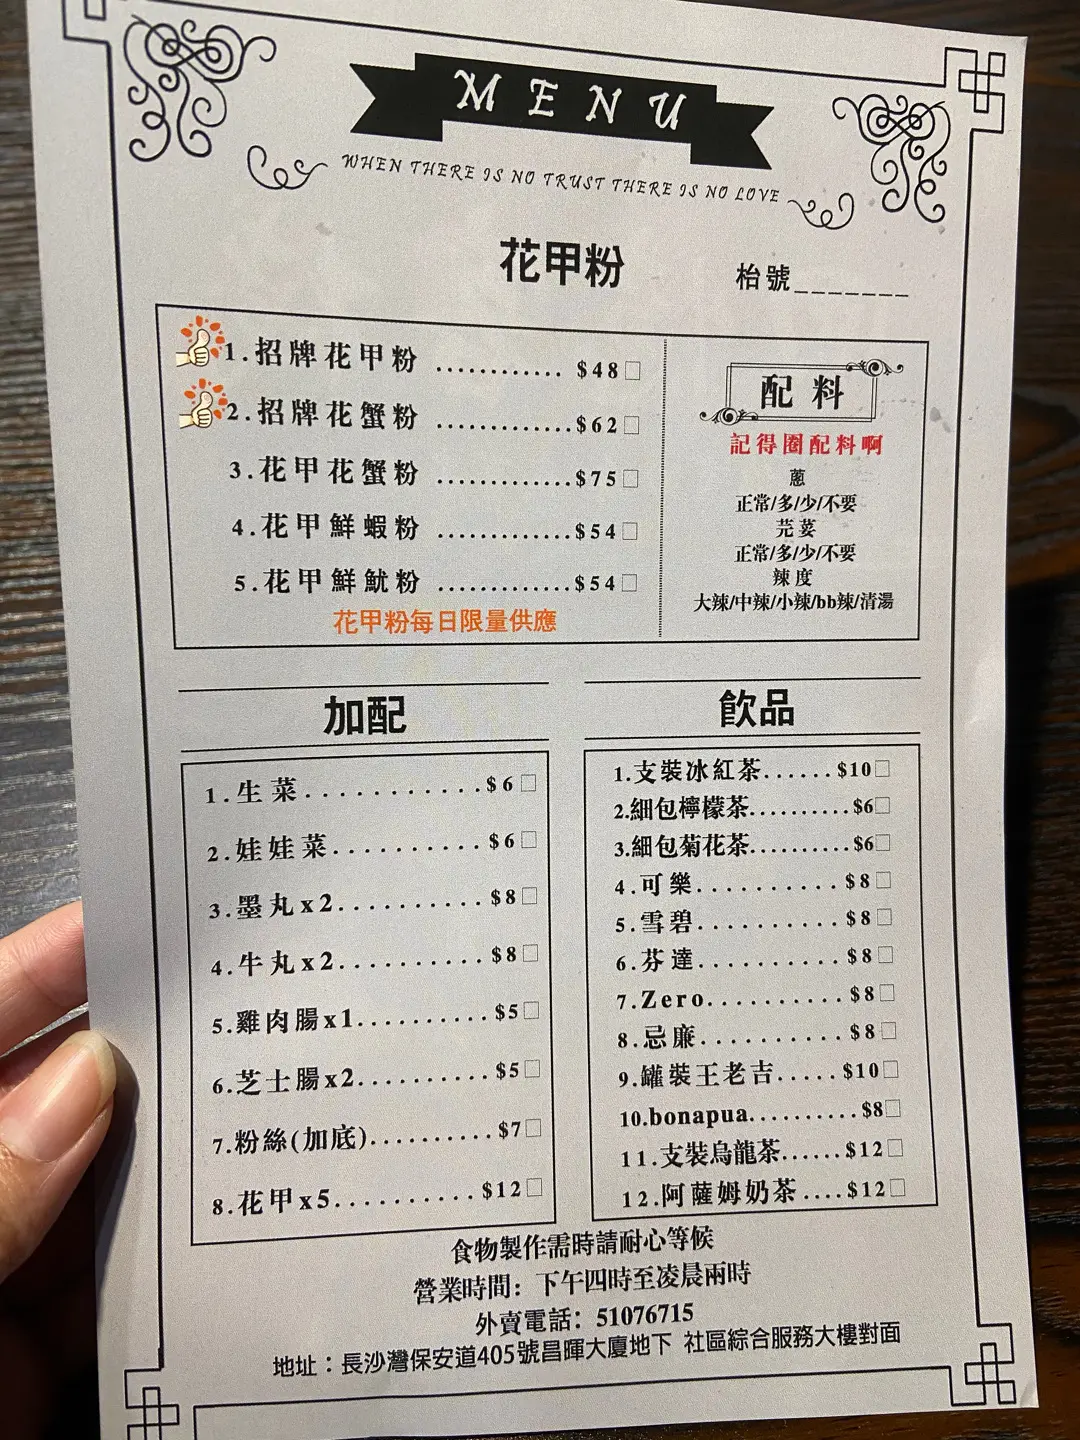 MENU
WHEN THERE IS NO TRUST THERE IS NO LOVE
花甲粉
枱號_______
1.招牌花甲粉 ............ $48□
2.招牌花蟹粉 .............$62□
3.花甲花蟹粉 .............$75□
4.花甲鮮蝦粉 .............$54□
5.花甲鮮魷粉 .............$54□
花甲粉每日限量供應
配料
記得圈配料啊
蔥
正常/多/少/不要
芫荽
正常/多/少/不要
辣度
大辣/中辣/小辣/bb辣/清湯
加配
1.生菜...........$6□
2.娃娃菜..........$6□
3.墨丸x2..........$8□
4.牛丸x2..........$8□
5.雞肉腸x1..........$5□
6.芝士腸x2..........$5□
7.粉絲(加底)..........$7□
8.花甲x5..........$12□
飲品
1.支裝冰紅茶......$10□
2.細包檸檬茶..........$6□
3.細包菊花茶..........$6□
4.可樂...........$8□
5.雪碧...........$8□
6.芬達...........$8□
7.Zero..........$8□
8.忌廉...........$8□
9.罐裝王老吉.....$10□
10.bonapua..........$8□
11.支裝烏龍茶......$12□
12.阿薩姆奶茶....$12□
食物製作需時請耐心等候
營業時間：下午四時至凌晨兩時
外賣電話：51076715
地址：長沙灣保安道405號昌暉大廈地下 社區綜合服務大樓對面